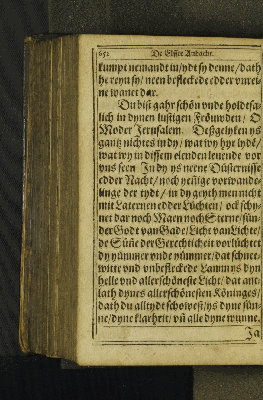 652 De Elffte Andacht.
kumpt nemandt in/ydt sy denne/dath
he reyn sy/ neen befleckede edder vnrei-
ne wanet dar.
Du bist gahr schön vnde holdtsa-
lich in dynen lustigen Fröuwden/ O
Moder Jerusalem. Deßgelyken ys
gantz nichtes in dy/ wat wy hyr lydē/
wat wy in dissem elenden leuende vor
vns seen In dy ys neene Düsternisse
edder Nacht/ noch yenige vorwande-
linge der tydt/ in dy geyth men nicht
mit Laternen edder Lüchten/ ock schy-
net dar noch Maen noch Sterne/ sün-
der Godt van Gade/Licht van Lichte/
de Süñe der Gerechticheit vorlüchtet
dy yümmer vnde yümmer/ dat schnee-
witte vnd vnbefleckede Lamm ys dyn
helle vnd allerschöneste Licht/ dat ant-
lath dynes allerschönesten Köninges/
dath du alltydt schowest/ys dyne sün-
ne/dyne klarheit/ vñ alle dyne wunne.
Ja